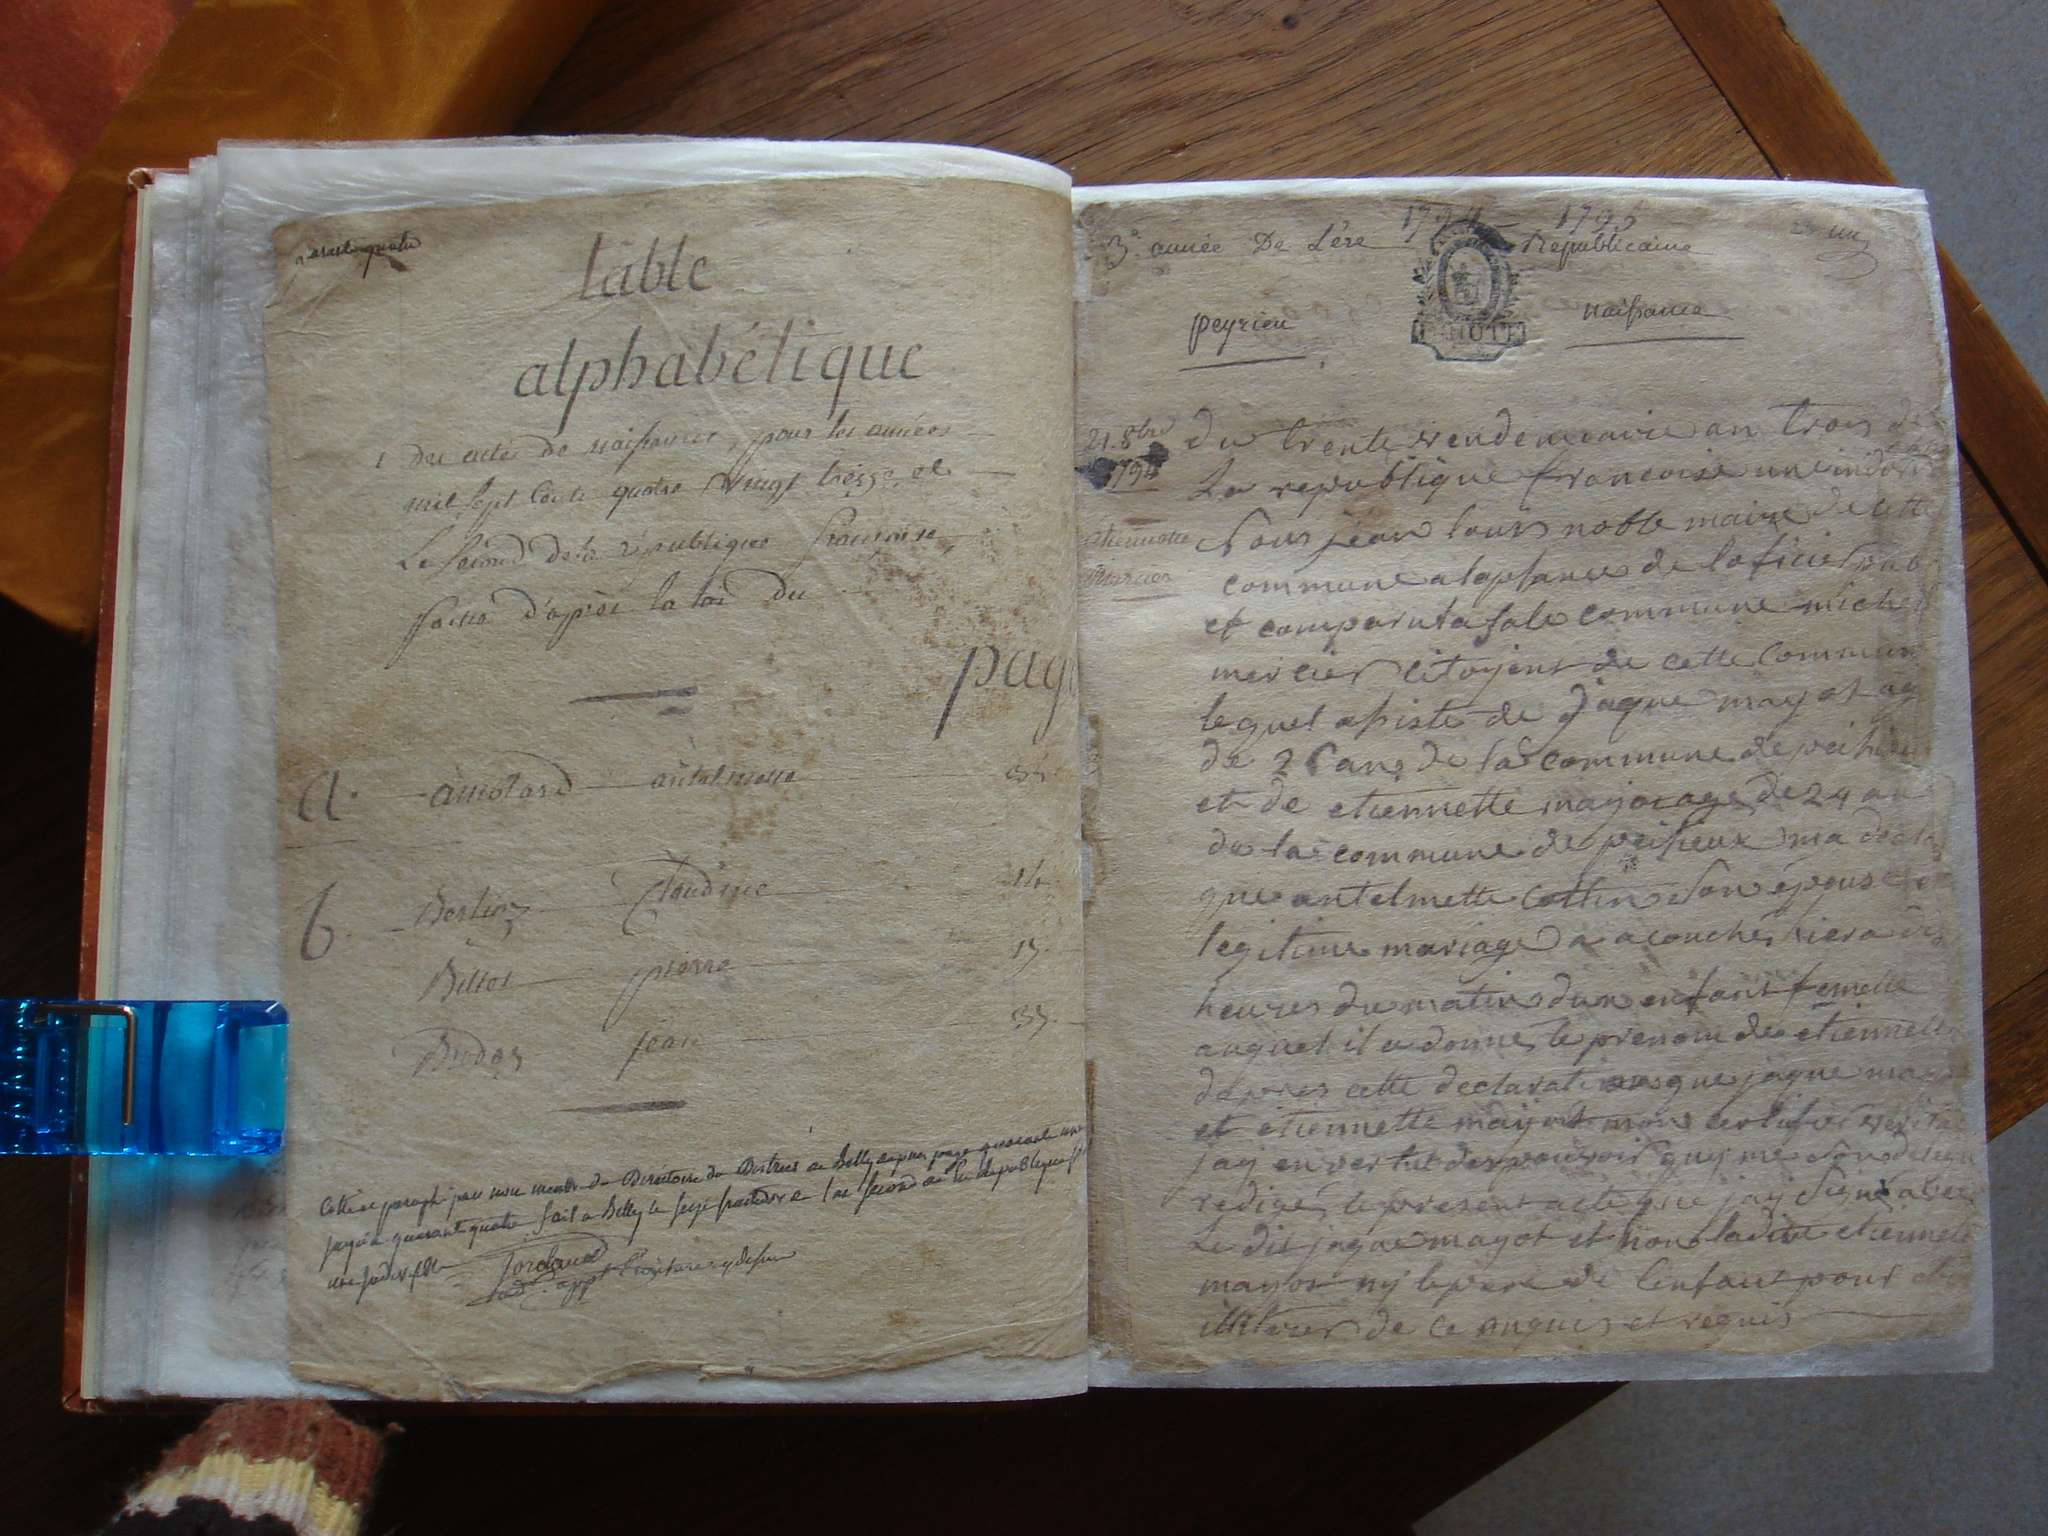 table
alphabétique
des actes de naissances, pour les années
mil sept cents quatre vingt treize, et
Le second de la république françoise,
faitte d'après la loi du
page
a. antelmette 34
b. Bertin Claudine 14.
Billet pierre 15.
jean 35.
Cotté et paraphé par nous membre du Directoire du District de Belley depuis page quarante une
jusqu'a quarante quatre fait a Belley le seize de la republique
1794 - 1795
3e année De L'ère Republicaine
peyrieu naissance
21. 8bre
1794
etiennette
Mercier
du trente vendemeaire an trois de
La republique francoise une indivi
Nous jean louis noble maire de cette
commune alaplance de loficier pub
et comparut a sale commune miche
mercier citoyent de cette commun
lequel asisté de jaque mayot ag
de 25 ans de la commune de peihieu
et de etiennette mayot age de 24 an
de la commune de peihieux ma decla
que antelmette cottin son epouse en
legitime mariage a acouché hiera dix
heures du matin dun enfant femelle
auquel il a donne le prenom de etiennett
dapres cette declaration que jaque may
et etiennette mayot mon certifier verita
jay en vertu des pouvoir quy me son delegu
redigé le present acte que jay signé avec
Le dit jaque mayot et non ladite etiennette
mayot ny le pere de lenfant pour etre
illiterer de ce anquis et requis